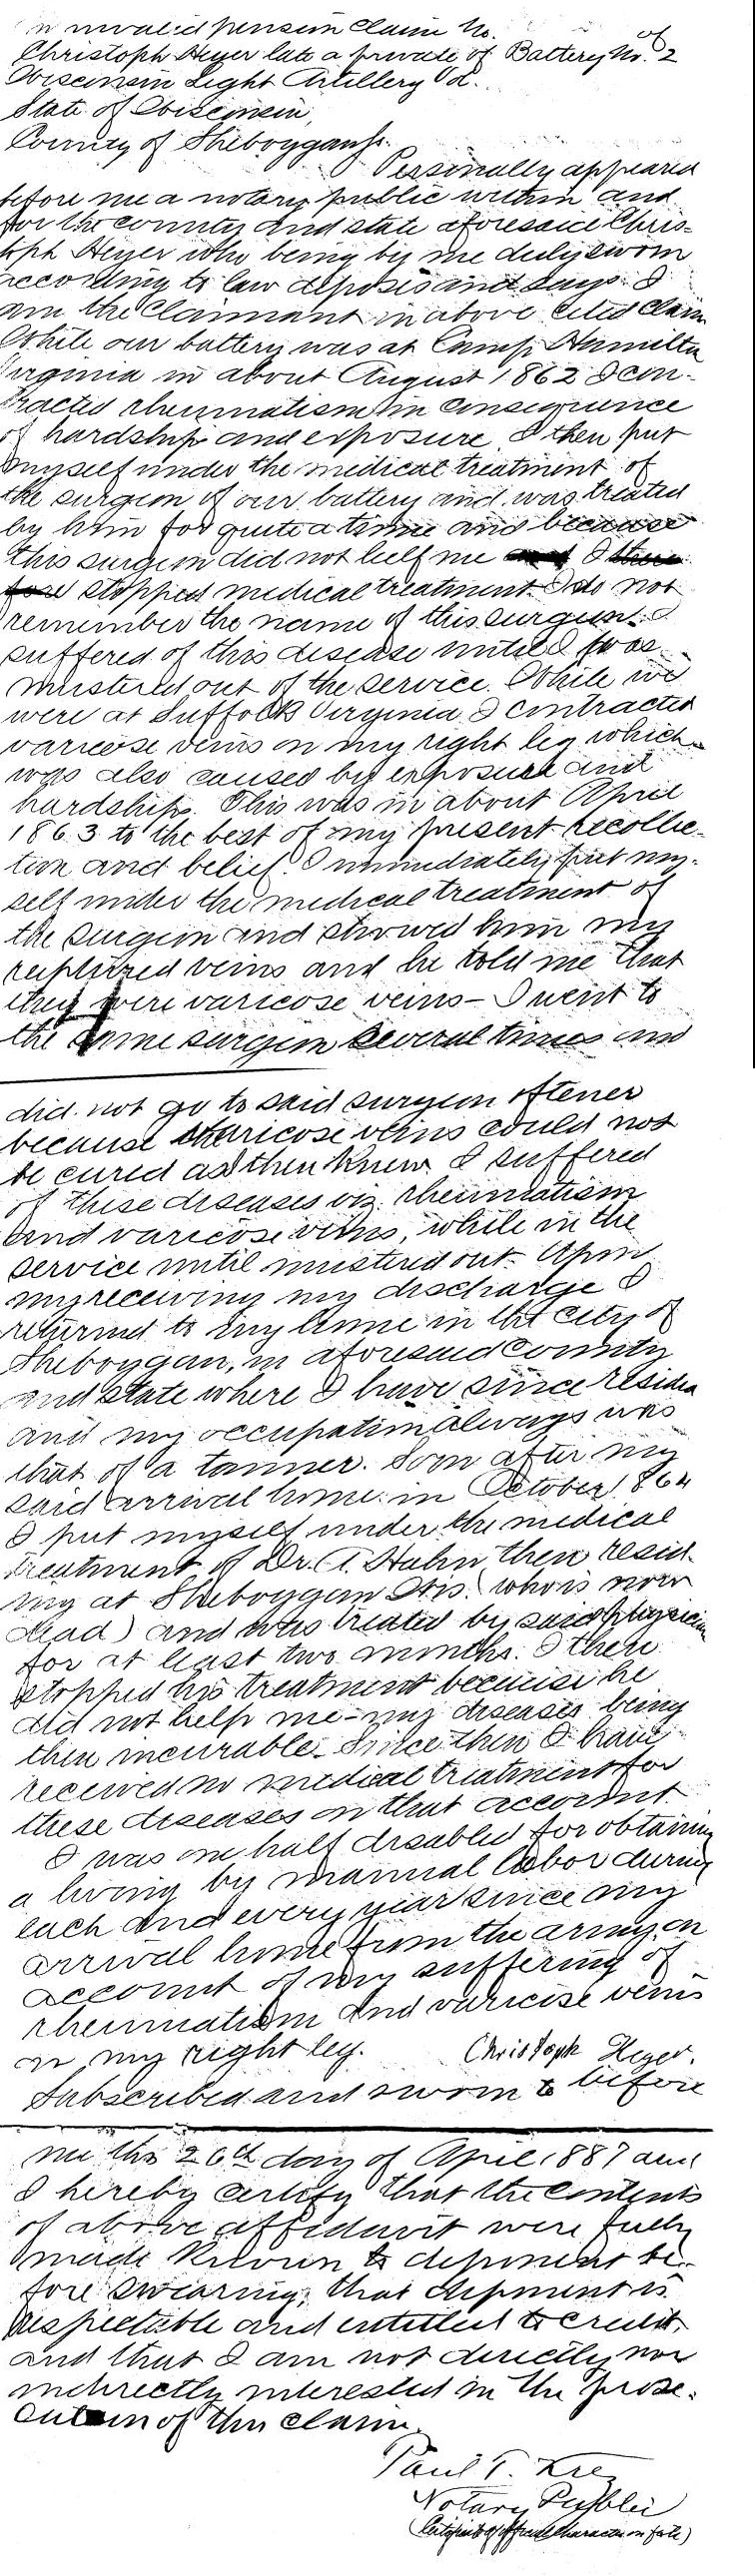 In invalid pension claim No. of
Christoph Heyer late a private of Battery No. 2
Wisconsin Light Artillery Vol.
State of Wisconsin,
County of Sheboygan ss.
Personally appeared
before me a notary public within and
for the county and state aforesaid Chris-
toph Heyer who being by me duly sworn
according to law deposes and says: I
am the Claimant in above cited claim
While our battery was at Camp Hamilton
Virginia in about August 1862 I con-
tracted rheumatism in consequence
of hardship and exposure. I then put
myself under the medical treatment of
the surgeon of our battery and was treated
by him for quite a time and because
this surgeon did not help me I
stopped medical treatment. I do not
remember the name of this surgeon. I
suffered of this disease until I was
mustered out of the service. While we
were at Suffolk Virginia I contracted
varicose veins on my right leg which
was also caused by exposure and
hardship. This was in about April
1863 to the best of my present recollec-
tion and belief. I immediately put my-
self under the medical treatment of
the surgeon and showed him my
ruptured veins and he told me that
they were varicose veins - I went to
the same surgeon several times and
did not go to said surgeon oftener
because varicose veins could not
be cured as I then knew. I suffered
of these diseases viz. rheumatism
and varicose veins, while in the
service until mustered out. Upon
my receiving my discharge I
returned to my home in the city of
Sheboygan, in aforesaid County
and state where I have since resided
and my occupation always was
that of a tanner. Soon after my
said arrival home in October 1864
I put myself under the medical
treatment of Dr. A. Hahn then resid-
ing at Sheboygan Wis. (who is now
dead) and was treated by said physician
for at least two months. I then
stopped his treatment because he
did not help me - my diseases being
then incurable. Since then I have
received no medical treatment for
these diseases on that account.
I was one half disabled for obtaining
a living by manual labor during
each and every year since my
arrival home from the army on
account of my suffering of
rheumatism and varicose veins
on my right leg. Christoph Heyer.
Subscribed and sworn to before
me this 26th day of April 1887 and
I hereby certify that the contents
of above affidavit were fully
made known to deponent be-
fore swearing; that deponent is
respectable and entitled to credit,
and that I am not directly nor
indirectly interested in the prose-
cution of this claim.
Paul T. Krez
Notary Public
(Certificate of official character on file)